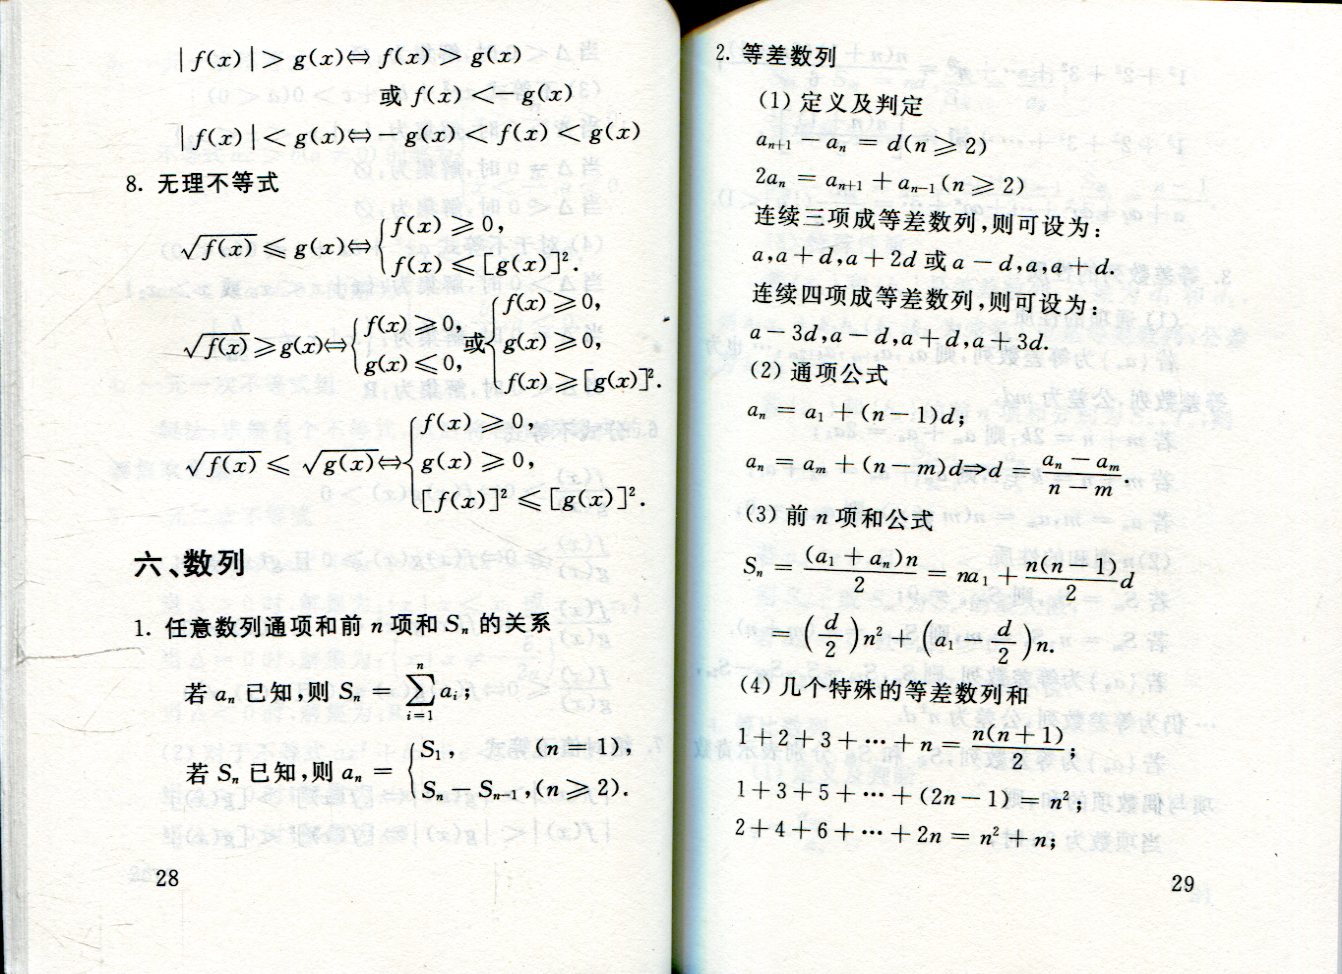 |f(x)|>g(x)⇔f(x)>g(x)
或f(x)<-g(x)
|f(x)|<g(x)⇔-g(x)<f(x)<g(x)
8. 无理不等式
√f(x)≤g(x)⇔{f(x)≥0,
f(x)≤[g(x)]².
√f(x)≥g(x)⇔{f(x)≥0, g(x)≤0, 或{f(x)≥0, g(x)≥0, f(x)≥[g(x)]².
√f(x)≤√g(x)⇔{f(x)≥0,
g(x)≥0,
[f(x)]²≤[g(x)]².
六、数列
1. 任意数列通项和前n项和Sₙ的关系
若aₙ已知,则Sₙ=∑ⁿᵢ₌₁aᵢ;
若Sₙ已知,则aₙ={S₁, (n=1),
Sₙ-Sₙ₋₁,(n≥2).
28
2. 等差数列
(1) 定义及判定
aₙ₊₁-aₙ=d(n≥2)
2aₙ=aₙ₊₁+aₙ₋₁(n≥2)
连续三项成等差数列,则可设为:
a,a+d,a+2d或a-d,a,a+d.
连续四项成等差数列,则可设为:
a-3d,a-d,a+d,a+3d.
(2) 通项公式
aₙ=a₁+(n-1)d;
aₙ=aₘ+(n-m)d⇒d=(aₙ-aₘ)/(n-m).
(3) 前n项和公式
Sₙ=(a₁+aₙ)n/2=na₁+n(n-1)/2 d
=(d/2)n²+(a₁-d/2)n.
(4) 几个特殊的等差数列和
1+2+3+…+n=n(n+1)/2;
1+3+5+…+(2n-1)=n²;
2+4+6+…+2n=n²+n;
29